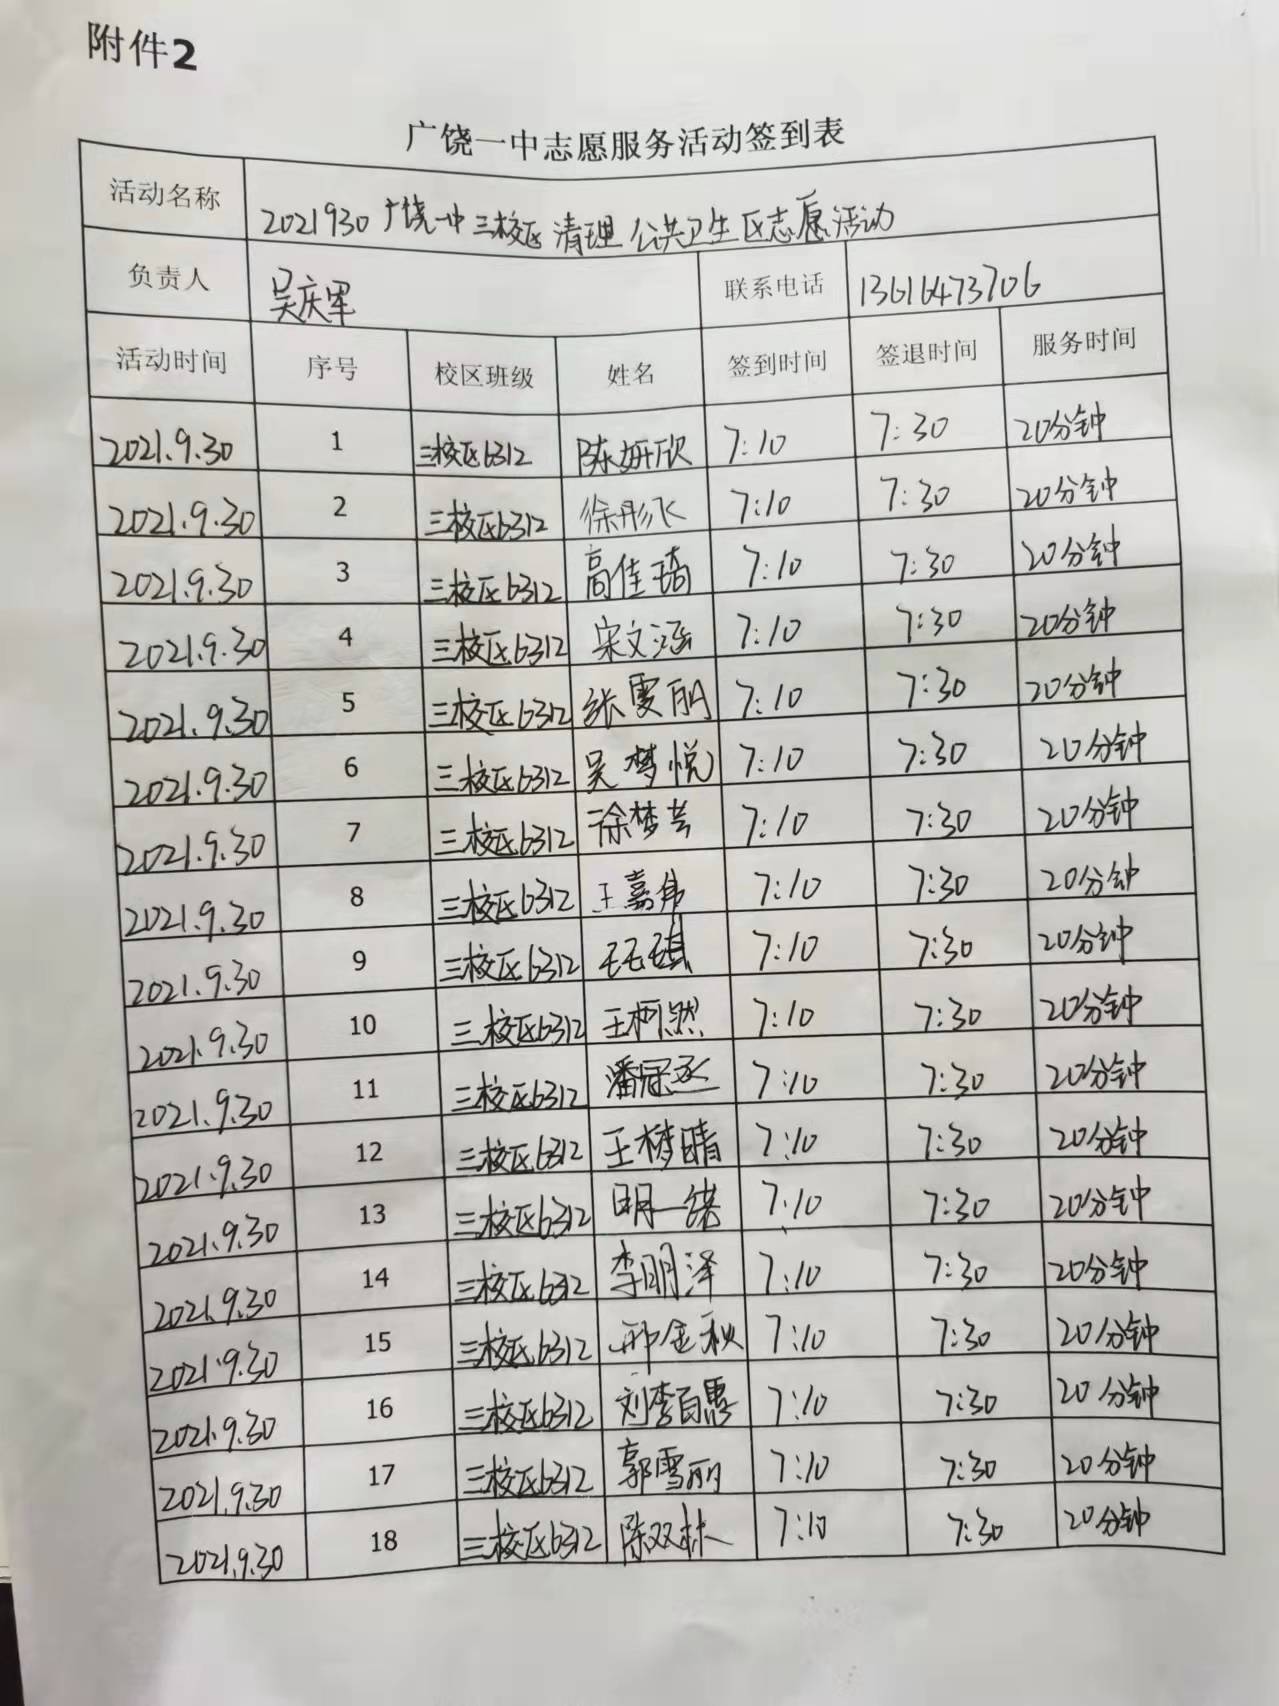 附件2
广饶一中志愿服务活动签到表
活动名称 2021930广饶一中三校区清理公共卫生区志愿活动
负责人 吴庆军 联系电话 13616473706
活动时间 序号 校区班级 姓名 签到时间 签退时间 服务时间
2021.9.30 1 三校区6312 陈妍欣 7:10 7:30 20分钟
2021.9.30 2 三校区6312 徐彤飞 7:10 7:30 20分钟
2021.9.30 3 三校区6312 高佳琦 7:10 7:30 20分钟
2021.9.30 4 三校区6312 宋文涵 7:10 7:30 20分钟
2021.9.30 5 三校区6312 张雯丽 7:10 7:30 20分钟
2021.9.30 6 三校区6312 吴梦悦 7:10 7:30 20分钟
2021.9.30 7 三校区6312 徐梦芸 7:10 7:30 20分钟
2021.9.30 8 三校区6312 王嘉伟 7:10 7:30 20分钟
2021.9.30 9 三校区6312 7:10 7:30 20分钟
2021.9.30 10 三校区6312 王柯然 7:10 7:30 20分钟
2021.9.30 11 三校区6312 潘冠丞 7:10 7:30 20分钟
2021.9.30 12 三校区6312 王梦晴 7:10 7:30 20分钟
2021.9.30 13 三校区6312 明一诺 7:10 7:30 20分钟
2021.9.30 14 三校区6312 李明泽 7:10 7:30 20分钟
2021.9.30 15 三校区6312 邢金秋 7:10 7:30 20分钟
2021.9.30 16 三校区6312 刘李百惠 7:10 7:30 20分钟
2021.9.30 17 三校区6312 郭雪丽 7:10 7:30 20分钟
2021.9.30 18 三校区6312 陈双林 7:10 7:30 20分钟